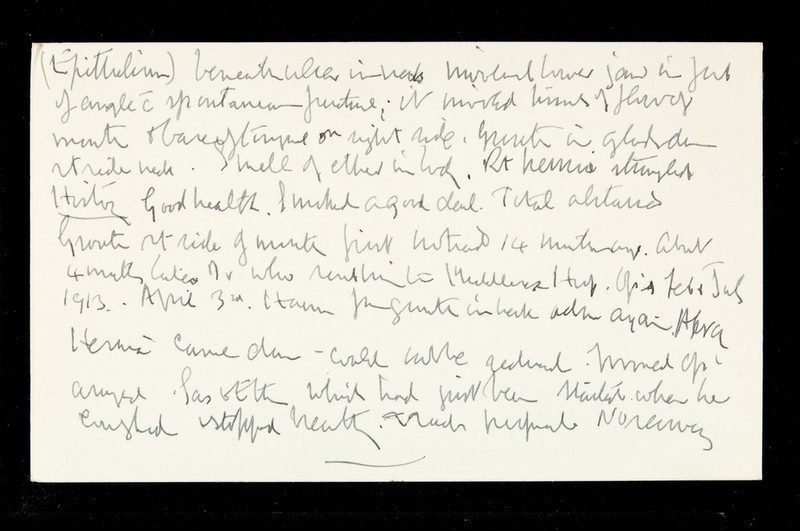 (Epithelium) beneath ulcer in neck involved lower jaw in front
of angle c̄ spontaneous fracture; it involved tissues of floor of
mouth & base of tongue on right side. Growth in glands down
rt side neck. Smell of ether in body. Rt hernia strangled
History Good health. Smoked a good deal. Total abstainer
Growth rt side of mouth first noticed 14 months ago. About
4 months later Dr who sent him to Middlesex Hosp. Opns Feb & July
1913. April 3rd. Haem from growth in neck adm again.
Hernia came down - could not be reduced. opn
arranged. Gas & Eth which had just been started when he
coughed & stopped breathing. No recovery